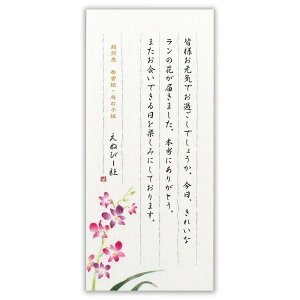 皆様お元気でお過ごしでしょうか。今日、きれいな
ランの花が届きました。本当にありがとう。
またお会いできる日を楽しみにしております。
越前産 奉書紙・鳥の子紙
えぬびー社